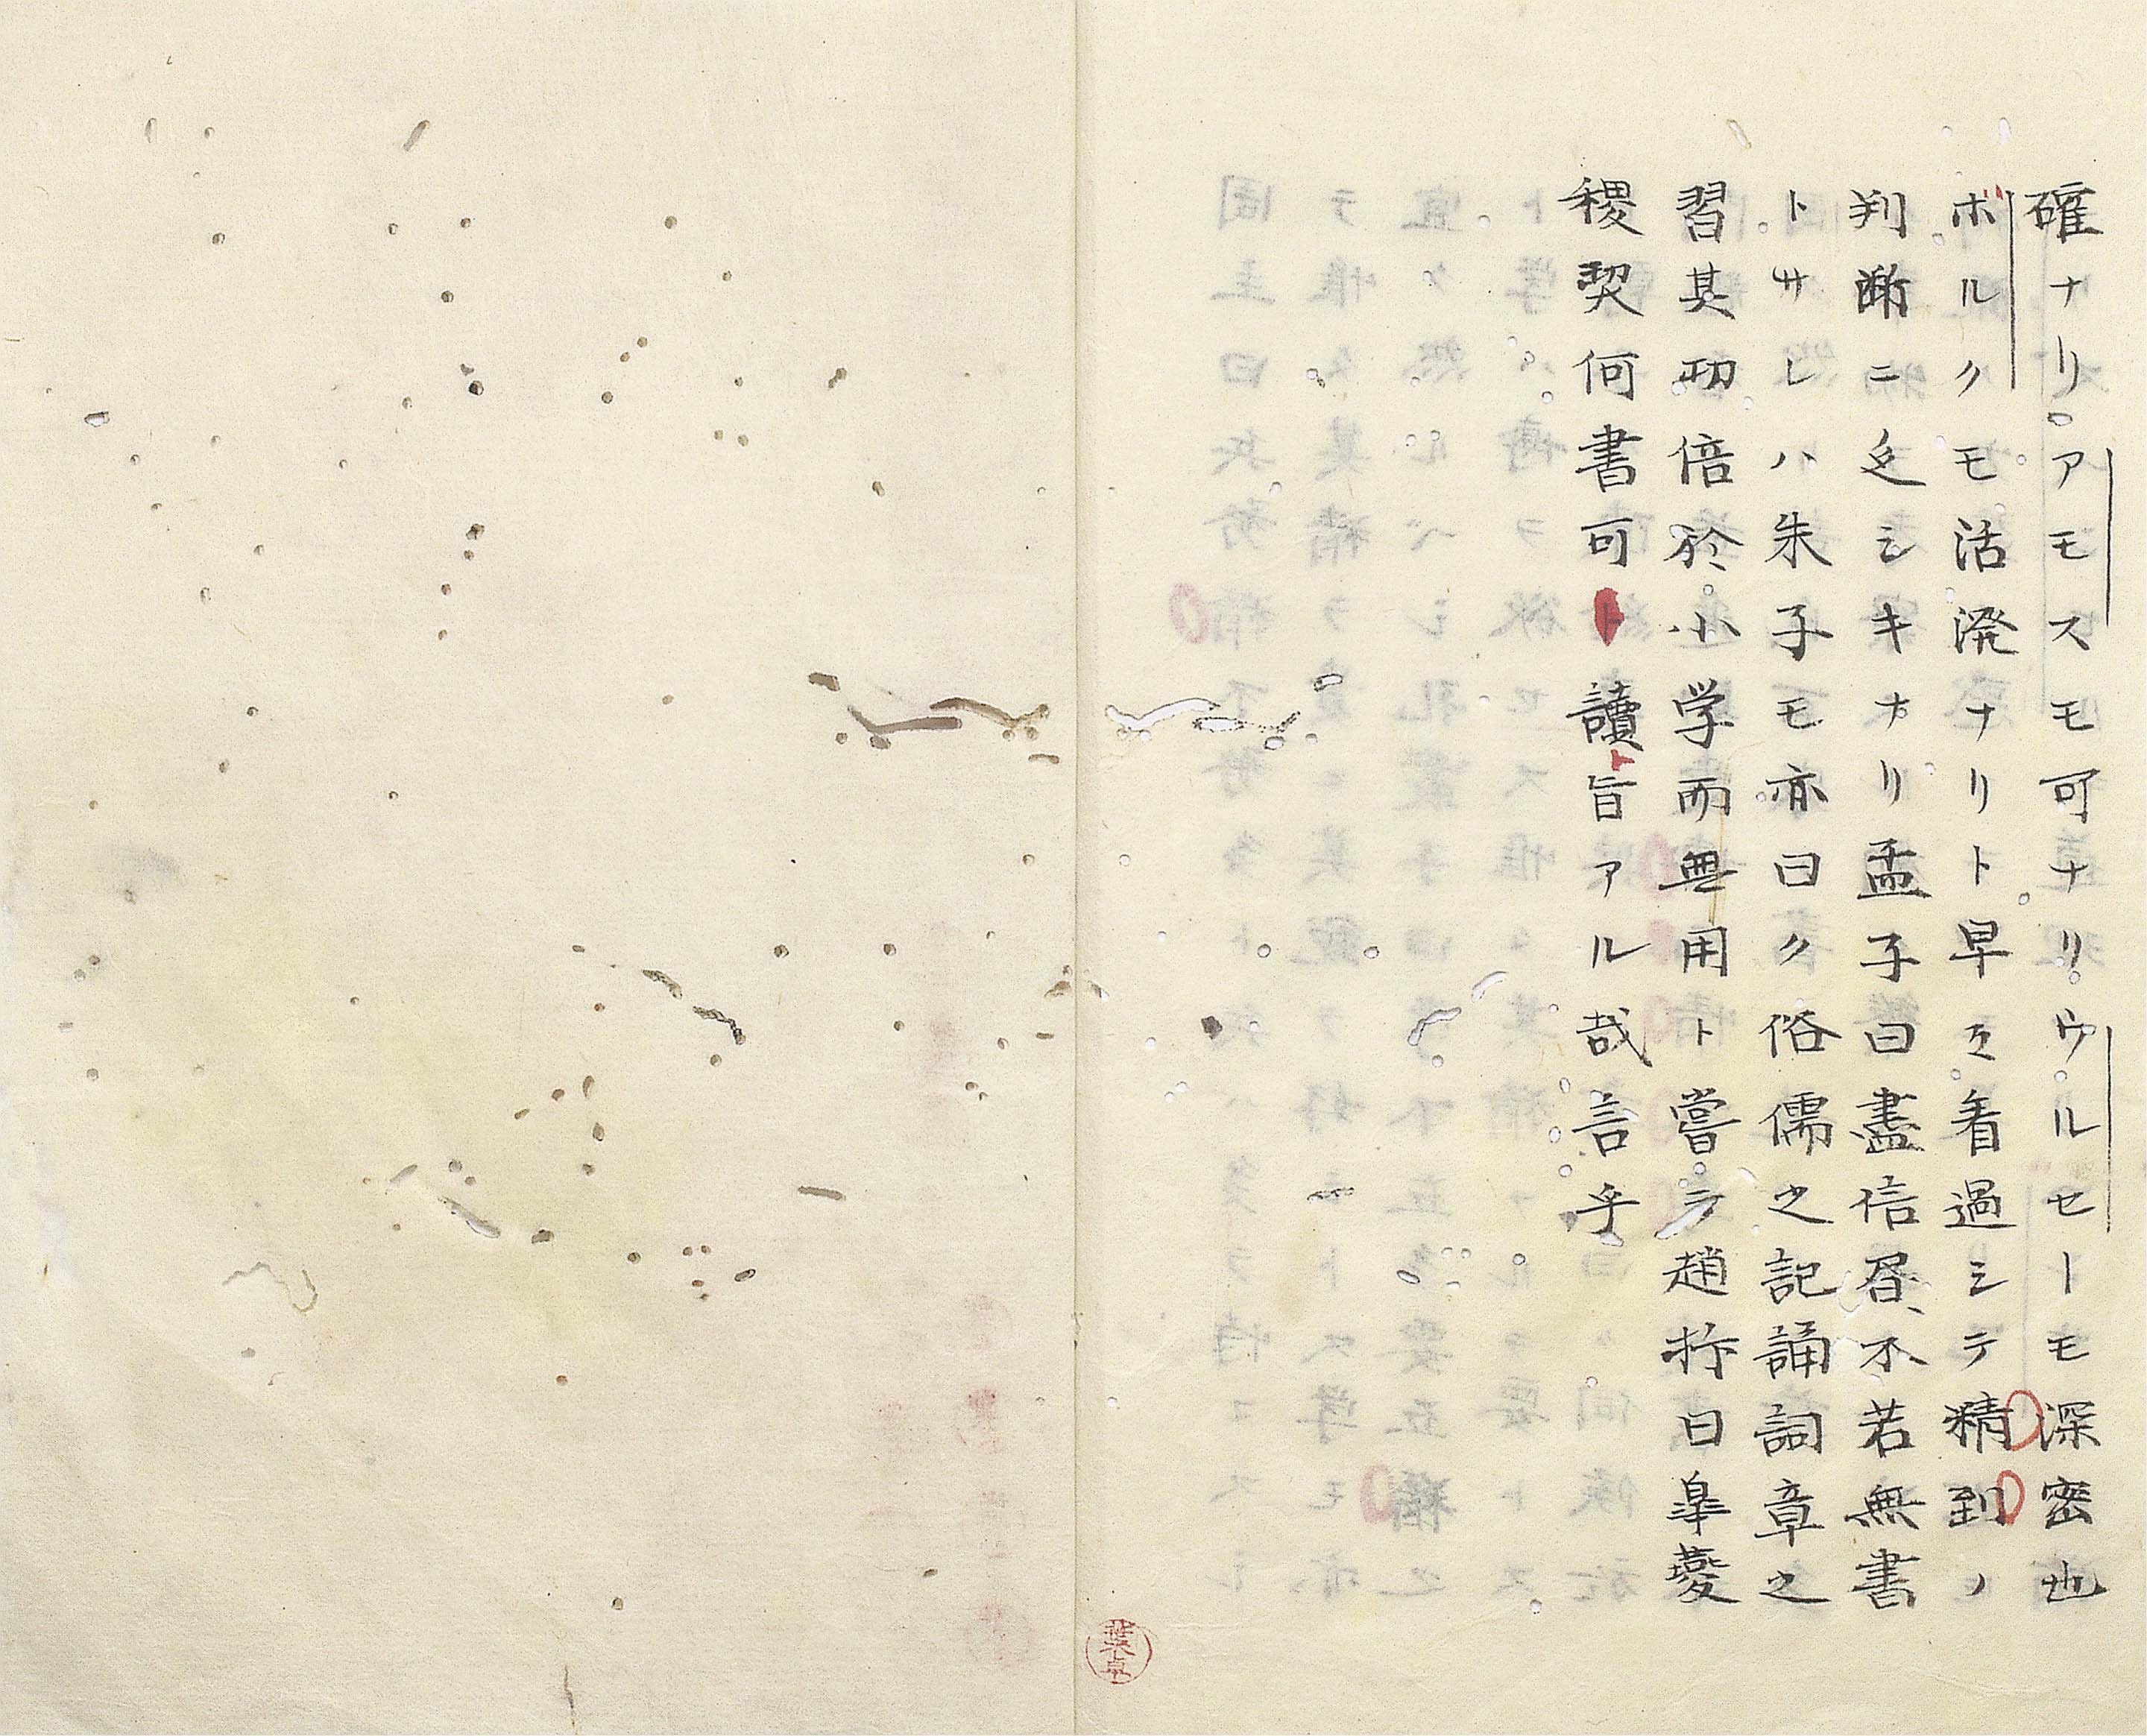 確ナリアモスモ可ナリウルセーモ深密也
ボルクモ活溌ナリト早々看過シテ精到ノ
判断ニ乏シキナリ孟子曰盡信書不若無書
トサレハ朱子モ亦曰ク俗儒之記誦詞章之
習其功倍於小学而無用ト嘗テ趙抃曰皐夔
稷契何書可讀ト旨アル哉言乎